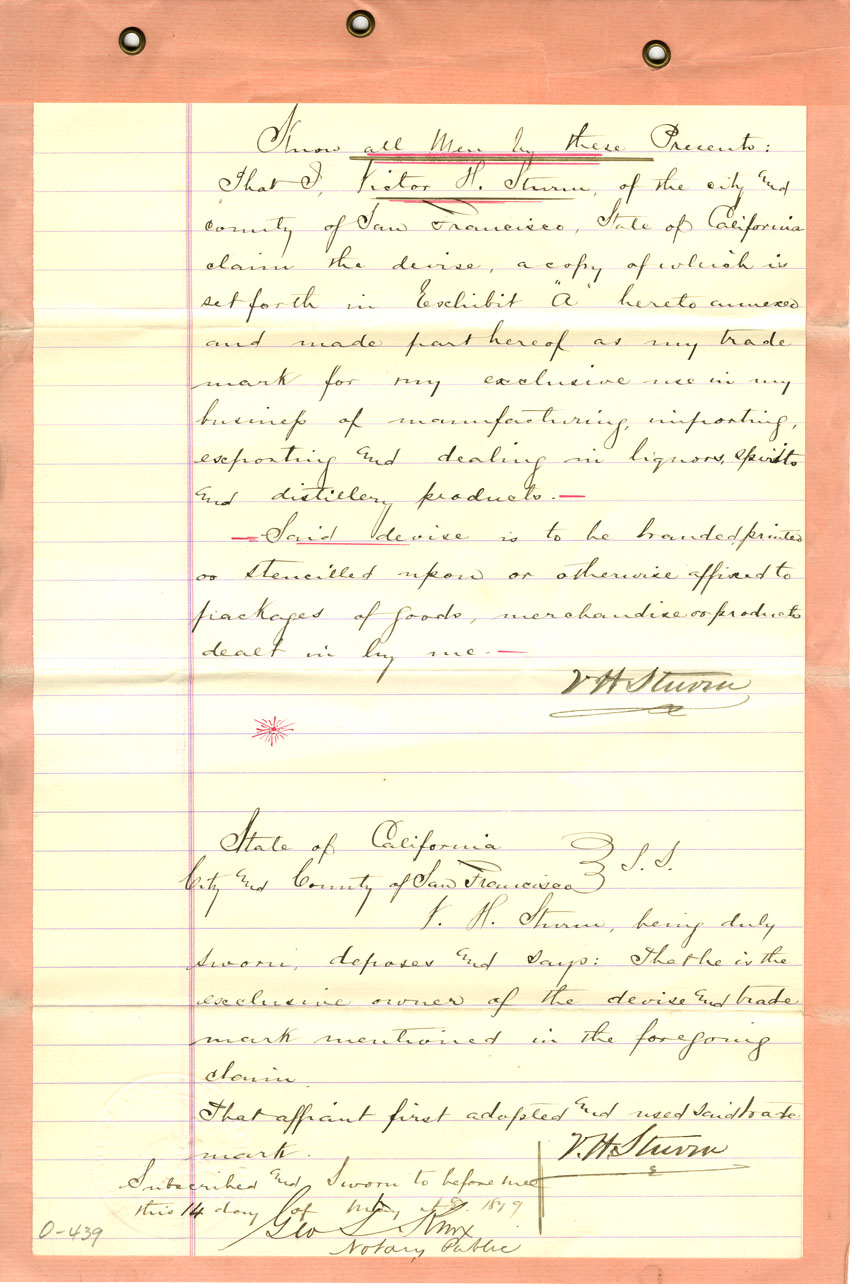 Know all Men by these Presents:
That I, Victor H. Sturm, of the city and
county of San Francisco, State of California
claim the devise, a copy of which is
set forth in Exhibit "A" hereto annexed
and made part hereof as my trade
mark for my exclusive use in my
business of manufacturing, importing,
exporting and dealing in liquors, spirits
and distillery products.—
—Said devise is to be branded, printed
or stencilled upon or otherwise affixed to
packages of goods, merchandise or products
dealt in by me.—
V H Sturm
State of California
City and County of San Francisco } S. S.
V. H. Sturm, being duly
sworn, deposes and says: That he is the
exclusive owner of the devise and trade
mark mentioned in the foregoing
claim.
That affiant first adopted and used said trade
mark.
V. H. Sturm
Subscribed and Sworn to before me
this 14 day of May A.D. 1879
Geo L Knox
Notary Public
O-439